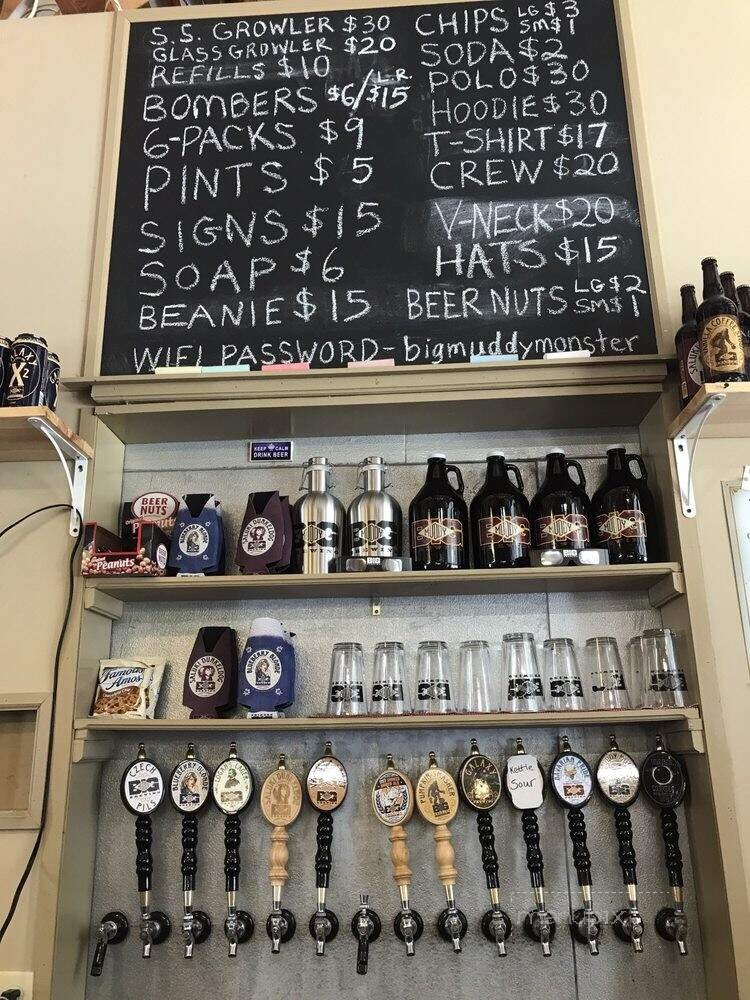 S.S. GROWLER $30
GLASS GROWLER $20
REFILLS $10
BOMBERS $6/$15 L.R.
6-PACKS $9
PINTS $5
SIGNS $15
SOAP $6
BEANIE $15
CHIPS LG $3 SM $1
SODA $2
POLO $30
HOODIE $30
T-SHIRT $17
CREW $20
V-NECK $20
HATS $15
BEER NUTS LG $2 SM $1
WIFI PASSWORD - bigmuddymonster
KEEP CALM
DRINK BEER
BEER
NUTS
Peanuts
Peanuts
Famous
Amos
SALUKI DUNKELDOG
BLUEBERRY BLONDE
CZECH
PILS
BLUEBERRY BLONDE
PUMPKIN
GALAXY
Kettle
Sour